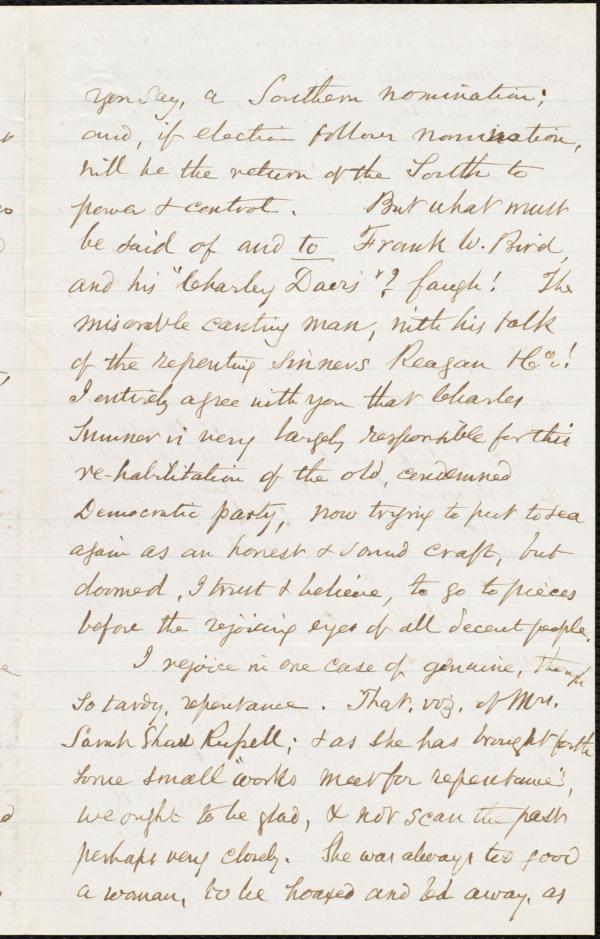 you say, a Southern nomination;
and, if election follows nomination,
will be the return of the South to
power & control. But what must
be said of and to Frank W. Bird,
and his "Charley Davis"? faugh! The
miserable canting man, with his talk
of the repenting sinners Reagan & Co!
I entirely agree with you that Charles
Sumner is very largely responsible for this
re-habilitation of the old, condemned
Democratic party, now trying to put to sea
again as an honest & sound craft, but
doomed, I trust & believe, to go to pieces
before the rejoicing eyes of all decent people.
I rejoice in one case of genuine, though
so tardy, repentance. That, viz, of Mrs.
Sarah Shaw Russell; & as she has brought forth
some small "works meet for repentance",
we ought to be glad, & not scan the past
perhaps very closely. She was always too good
a woman, to be hoaxed and led away, as